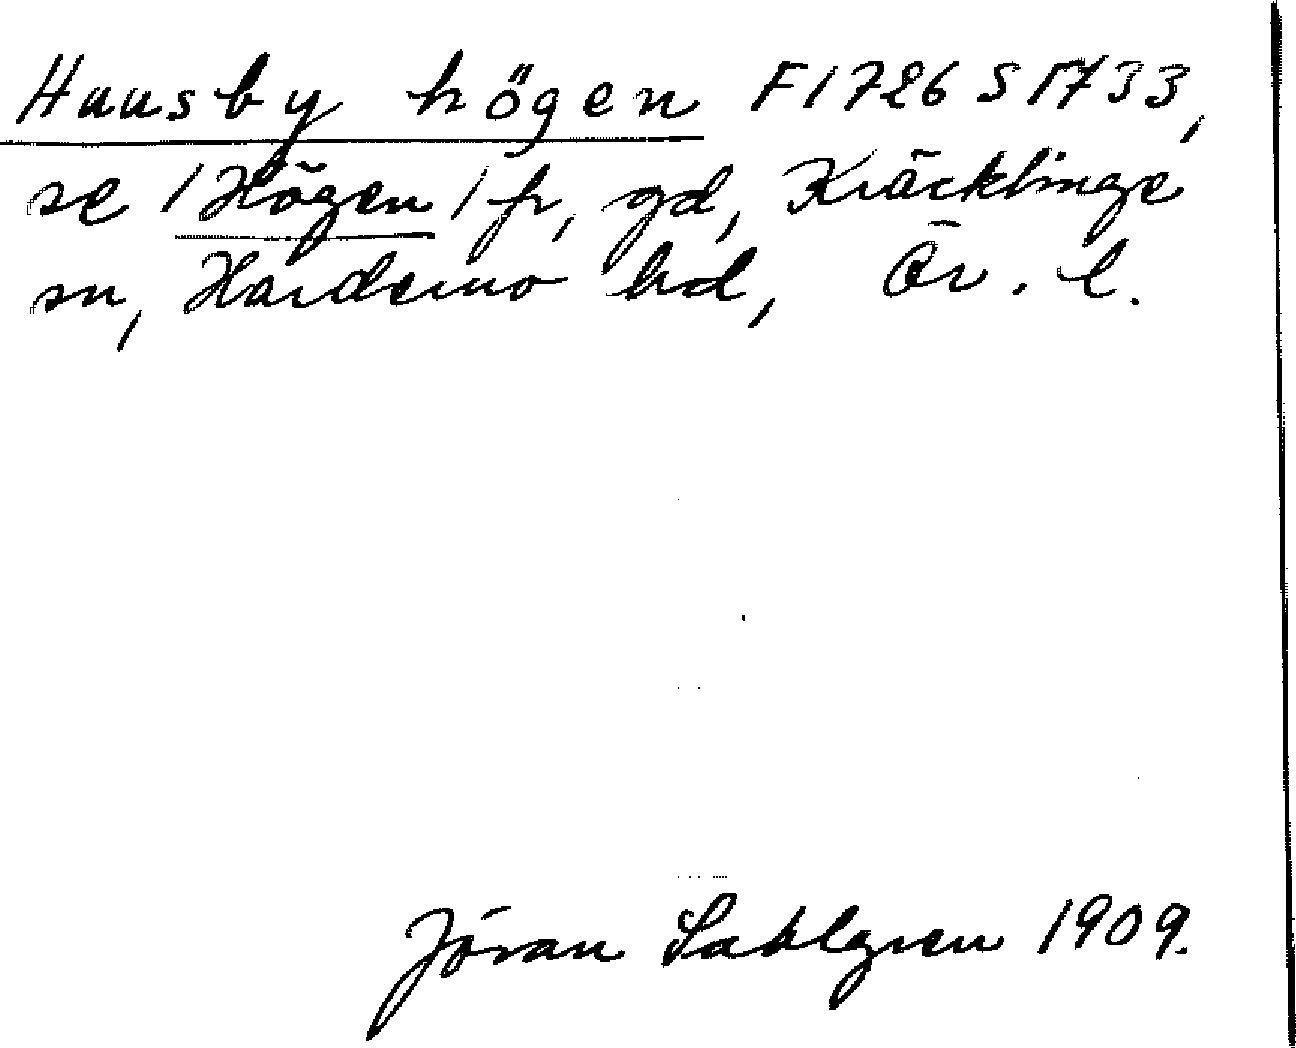 Huusby högen F1726 S1733,
se /Högen/ fr, gd, Kräcklinge
sn, Hardemo hd, Ör. l.
Jöran Sahlgren 1909.